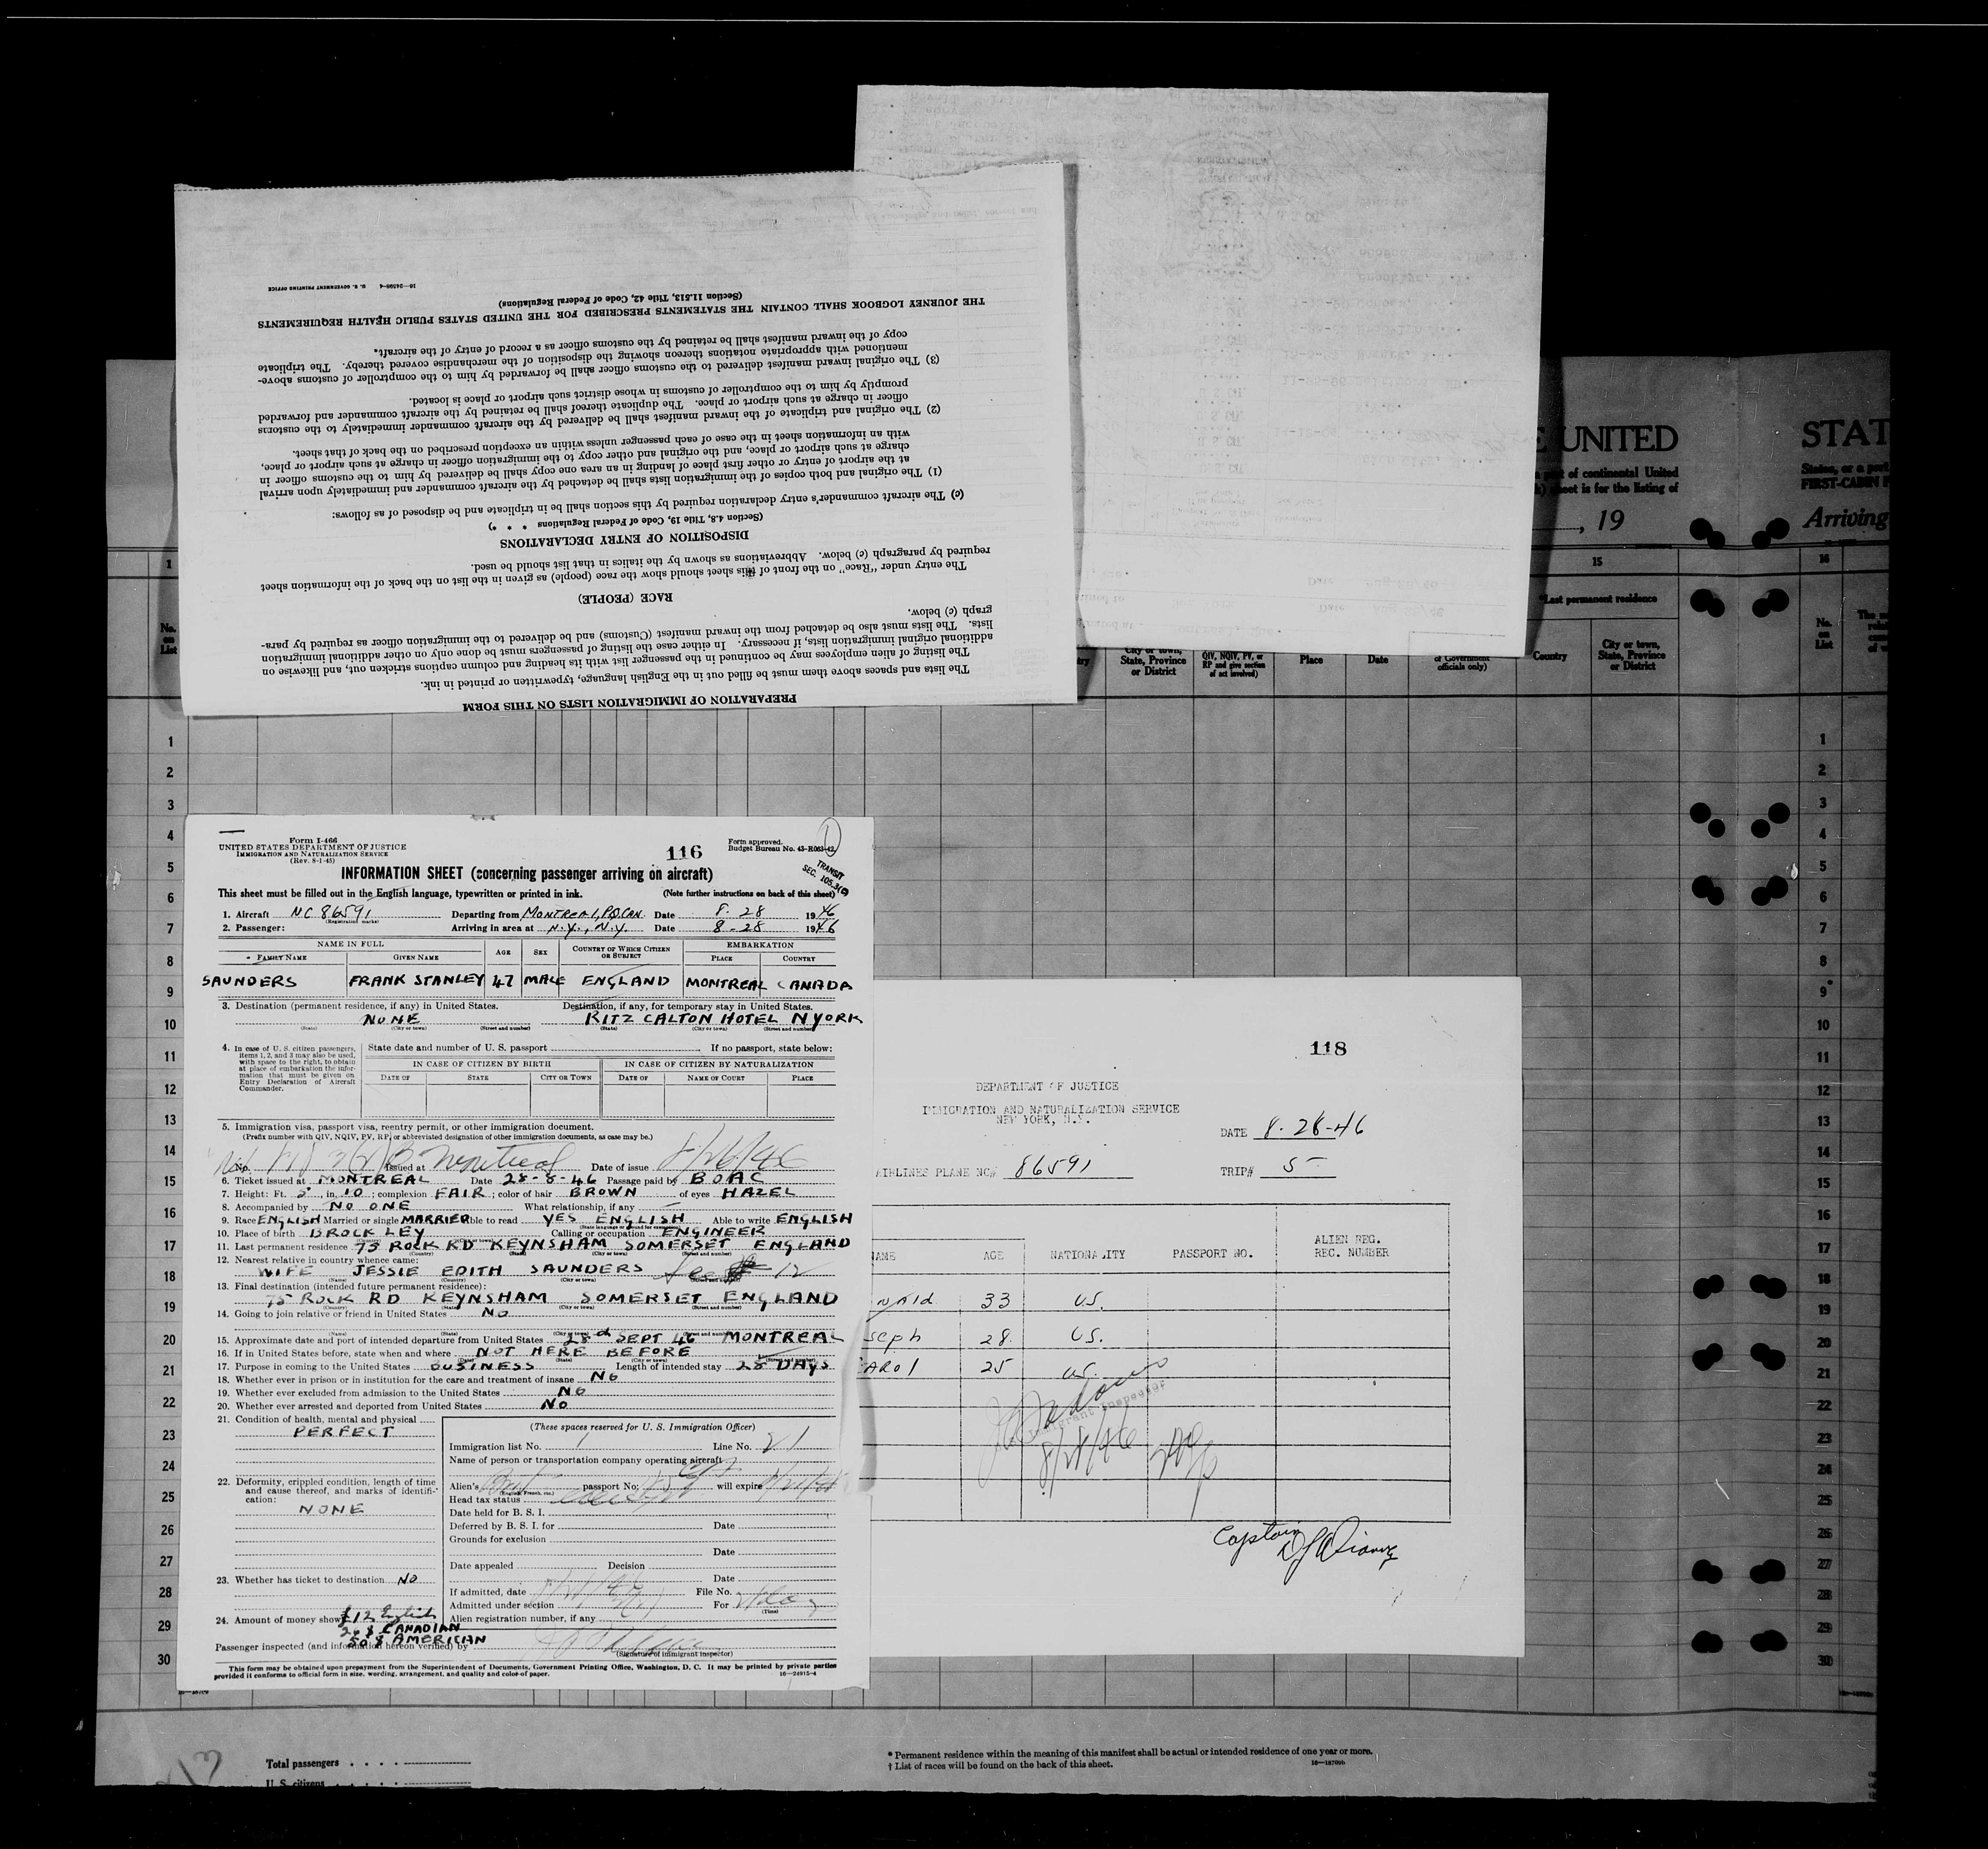 16—24598-4 U. S. GOVERNMENT PRINTING OFFICE
PREPARATION OF IMMIGRATION LISTS ON THIS FORM
The lists and spaces above them must be filled out in the English language, typewritten or printed in ink.
The listing of alien employees may be continued in the passenger list with its heading and column captions stricken out, and likewise on
additional original immigration lists, if necessary. In either case the listing of passengers must be done only on other additional immigration
lists. The lists must also be detached from the inward manifest (Customs) and be delivered to the immigration officer as required by para-
graph (c) below.
RACE (PEOPLE)
The entry under "Race" on the front of this sheet should show the race (people) as given in the list on the back of the information sheet
required by paragraph (c) below. Abbreviations as shown by the italics in that list should be used.
DISPOSITION OF ENTRY DECLARATIONS
(Section 4.8, Title 19, Code of Federal Regulations * * *)
(c) The aircraft commander's entry declaration required by this section shall be in triplicate and be disposed of as follows:
(1) The original and both copies of the immigration lists shall be detached by the aircraft commander and immediately upon arrival
at the airport of entry or other first place of landing in an area one copy shall be delivered by him to the customs officer in
charge at such airport or place, and the original and other copy to the immigration officer in charge at such airport or place,
with an information sheet in the case of each passenger unless within an exception prescribed on the back of that sheet.
(2) The original and triplicate of the inward manifest shall be delivered by the aircraft commander immediately to the customs
officer in charge at such airport or place. The duplicate thereof shall be retained by the aircraft commander and forwarded
promptly by him to the comptroller of customs in whose district such airport or place is located.
(3) The original inward manifest delivered to the customs officer shall be forwarded by him to the comptroller of customs above-
mentioned with appropriate notations thereon showing the disposition of the merchandise covered thereby. The triplicate
copy of the inward manifest shall be retained by the customs officer as a record of entry of the aircraft.
THE JOURNEY LOGBOOK SHALL CONTAIN THE STATEMENTS PRESCRIBED FOR THE UNITED STATES PUBLIC HEALTH REQUIREMENTS
(Section 11.513, Title 42, Code of Federal Regulations)
E UNITED STAT
of continental United States, or a part
sheet is for the listing of FIRST-CABIN
, 19 Arriving
1 15 16
No. on List
*Last permanent residence
No. on List
City or town, State, Province or District
QIV, NQIV, PV, or RP and give section of act involved)
Place Date
of Government officials only)
Country
City or town, State, Province or District
1 1
2 2
3 3
4 4
5 5
6 6
7 7
8 8
9 9
10 10
11 11
12 12
13 13
14 14
15 15
16 16
17 17
18 18
19 19
20 20
21 21
22 22
23 23
24 24
25 25
26 26
27 27
28 28
29 29
30 30
Form I-466
UNITED STATES DEPARTMENT OF JUSTICE
IMMIGRATION AND NATURALIZATION SERVICE
(Rev. 8-1-45)
116
1
Form approved.
Budget Bureau No. 43-R063-42
TRANSIT
SEC. 105.3
INFORMATION SHEET (concerning passenger arriving on aircraft)
This sheet must be filled out in the English language, typewritten or printed in ink. (Note further instructions on back of this sheet)
1. Aircraft NC 86591 Departing from MONTREAL, P.Q. CAN. Date 8-28 1946
(Registration marks)
2. Passenger: Arriving in area at N.Y., N.Y. Date 8-28 1946
NAME IN FULL AGE SEX COUNTRY OF WHICH CITIZEN OR SUBJECT EMBARKATION
FAMILY NAME GIVEN NAME PLACE COUNTRY
SAUNDERS FRANK STANLEY 47 MALE ENGLAND MONTREAL CANADA
3. Destination (permanent residence, if any) in United States. Destination, if any, for temporary stay in United States.
NONE RITZ CALTON HOTEL NYORK
(State) (City or town) (Street and number) (State) (City or town) (Street and number)
4. In case of U. S. citizen passengers, items 1, 2, and 3 may also be used, with space to the right, to obtain at place of embarkation the information that must be given on Entry Declaration of Aircraft Commander.
State date and number of U. S. passport If no passport, state below:
IN CASE OF CITIZEN BY BIRTH IN CASE OF CITIZEN BY NATURALIZATION
DATE OF STATE CITY OR TOWN DATE OF NAME OF COURT PLACE
5. Immigration visa, passport visa, reentry permit, or other immigration document.
(Prefix number with QIV, NQIV, PV, RP, or abbreviated designation of other immigration documents, as case may be.)
No. Issued at Montreal Date of issue 8/26/46
6. Ticket issued at MONTREAL Date 28-8-46 Passage paid by BOAC
7. Height: Ft. 5 in. 10; complexion FAIR; color of hair BROWN of eyes HAZEL
8. Accompanied by NO ONE What relationship, if any
9. Race ENGLISH Married or single MARRIED Able to read YES ENGLISH Able to write ENGLISH
10. Place of birth BROCKLEY Calling or occupation ENGINEER
11. Last permanent residence 75 ROCK RD KEYNSHAM SOMERSET ENGLAND
12. Nearest relative in country whence came:
WIFE JESSIE EDITH SAUNDERS 12
13. Final destination (intended future permanent residence):
75 ROCK RD KEYNSHAM SOMERSET ENGLAND
14. Going to join relative or friend in United States NO
15. Approximate date and port of intended departure from United States 28th SEPT 46 MONTREAL
16. If in United States before, state when and where NOT HERE BEFORE
17. Purpose in coming to the United States BUSINESS Length of intended stay 28 DAYS
18. Whether ever in prison or in institution for the care and treatment of insane NO
19. Whether ever excluded from admission to the United States NO
20. Whether ever arrested and deported from United States NO
21. Condition of health, mental and physical
PERFECT
22. Deformity, crippled condition, length of time and cause thereof, and marks of identification:
NONE
23. Whether has ticket to destination NO
24. Amount of money shown £12 English
26 $ CANADIAN
50 $ AMERICAN
(These spaces reserved for U. S. Immigration Officer)
Immigration list No. 1 Line No. 21
Name of person or transportation company operating aircraft
Alien's passport No. will expire
(English, French, etc.)
Head tax status
Date held for B. S. I.
Deferred by B. S. I. for Date
Grounds for exclusion
Date
Date appealed Decision
Date
If admitted, date File No.
Admitted under section For
(Time)
Alien registration number, if any
Passenger inspected (and information hereon verified) by
(Signature of immigrant inspector)
This form may be obtained upon prepayment from the Superintendent of Documents, Government Printing Office, Washington, D. C. It may be printed by private parties
provided it conforms to official form in size, wording, arrangement, and quality and color of paper. 16—24915-4
118
DEPARTMENT OF JUSTICE
IMMIGRATION AND NATURALIZATION SERVICE
NEW YORK, N.Y.
DATE 8-28-46
AIRLINES PLANE NC# 86591 TRIP# 5
NAME AGE NATIONALITY PASSPORT NO. ALIEN REG. REC. NUMBER
nald 33 US.
seph 28 US.
CAROl 25 US.
Immigrant Inspector
8/28/46
Captain
Total passengers
U. S. citizens
* Permanent residence within the meaning of this manifest shall be actual or intended residence of one year or more.
† List of races will be found on the back of this sheet.